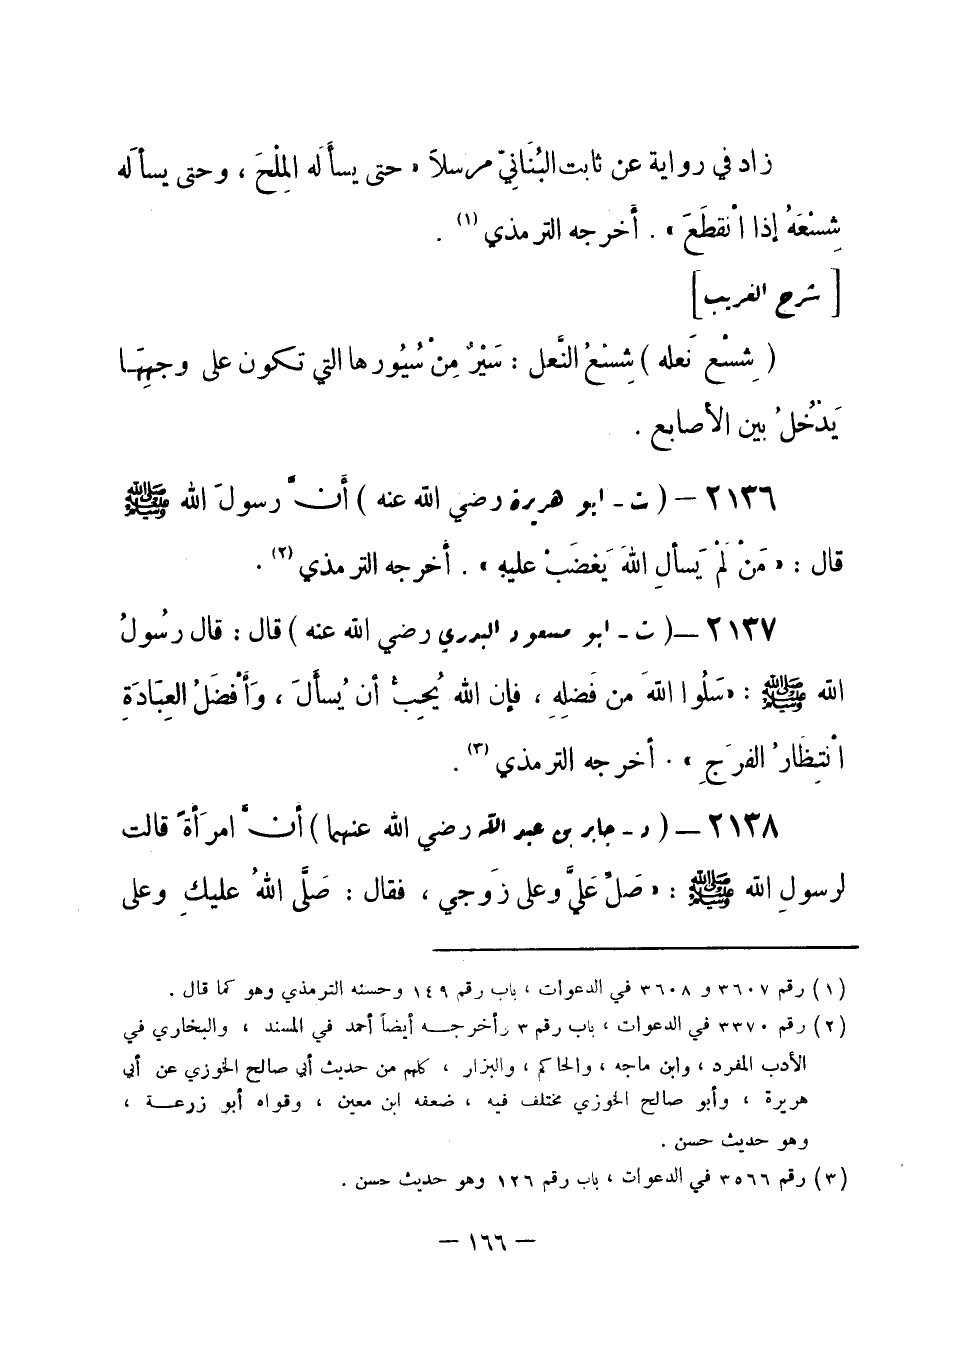 زاد في رواية عن ثابت البُنَانِيّ مرسلاً « حتى يسأَله المِلْحَ ، وحتى يسأله
شِسْعَهُ إذا انْقطَعَ » . أخرجه الترمذي (١) .
[ شرح الغريب ]
( شِسْع نَعله ) شِسْعُ النَّعل : سَيْرٌ مِنْ سُيُورها التي تكون على وجهِهَا
يَدْخُلُ بين الأصابع .
٢١٣٦ – ( ت - ابو هريرة رضي الله عنه ) أَنَّ رسولَ الله ﷺ
قال : « مَنْ لَمْ يَسألِ اللهَ يَغضَبْ عليهِ » . أخرجه الترمذي (٢) .
٢١٣٧ – ( ت - ابو مسعود البدري رضي الله عنه ) قال : قال رسُولُ
الله ﷺ : « سَلُوا اللهَ من فَضلِهِ ، فإن الله يُحِبُّ أن يُسأَلَ ، وَأَفْضَلُ العِبَادَةِ
انْتِظَارُ الفرَجِ » . أخرجه الترمذي (٣) .
٢١٣٨ – ( د - جابر بن عبد الله رضي الله عنهما ) أنَّ امرَأَةً قالت
لرسولِ الله ﷺ : « صَلِّ عَلَيَّ وعلى زَوجي ، فقال : صَلَّى اللهُ عليكِ وعلى
(١) رقم ٣٦٠٧ و ٣٦٠٨ في الدعوات ، باب رقم ١٤٩ وحسنه الترمذي وهو كما قال .
(٢) رقم ٣٣٧٠ في الدعوات ، باب رقم ٣ وأخرجه أيضاً أحمد في المسند ، والبخاري في
الأدب المفرد ، وابن ماجه ، والحاكم ، والبزار ، كلهم من حديث أبي صالح الخوزي عن أبي
هريرة ، وأبو صالح الخوزي مختلف فيه ، ضعفه ابن معين ، وقواه أبو زرعة ،
وهو حديث حسن .
(٣) رقم ٣٥٦٦ في الدعوات ، باب رقم ١٢٦ وهو حديث حسن .
– ١٦٦ –